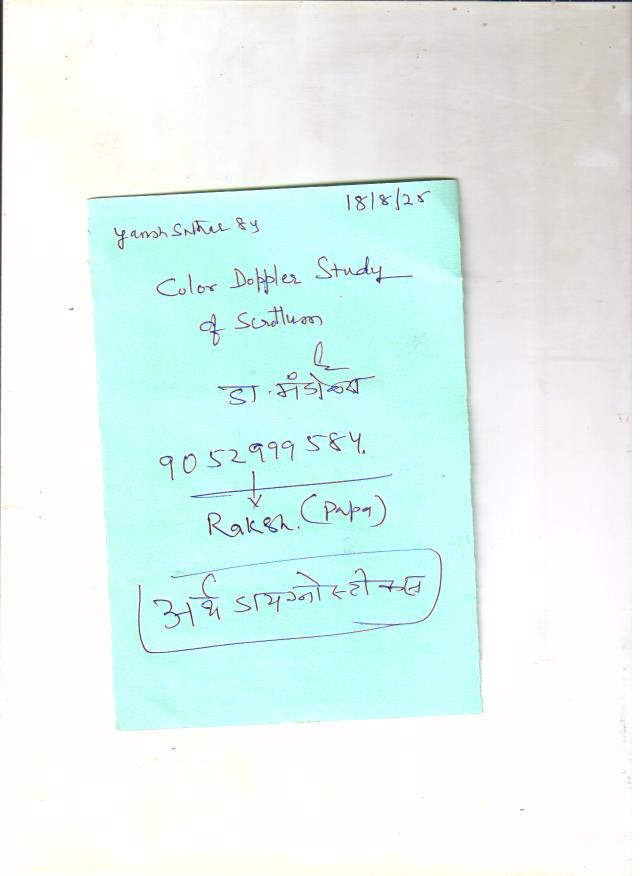 18/8/25
Yansh 8y
Color Doppler Study
of Scrotum
डा. मंडोवरा
9052999584.
Rakesh. (Papa)
अर्थ डायग्नोस्टीक्स